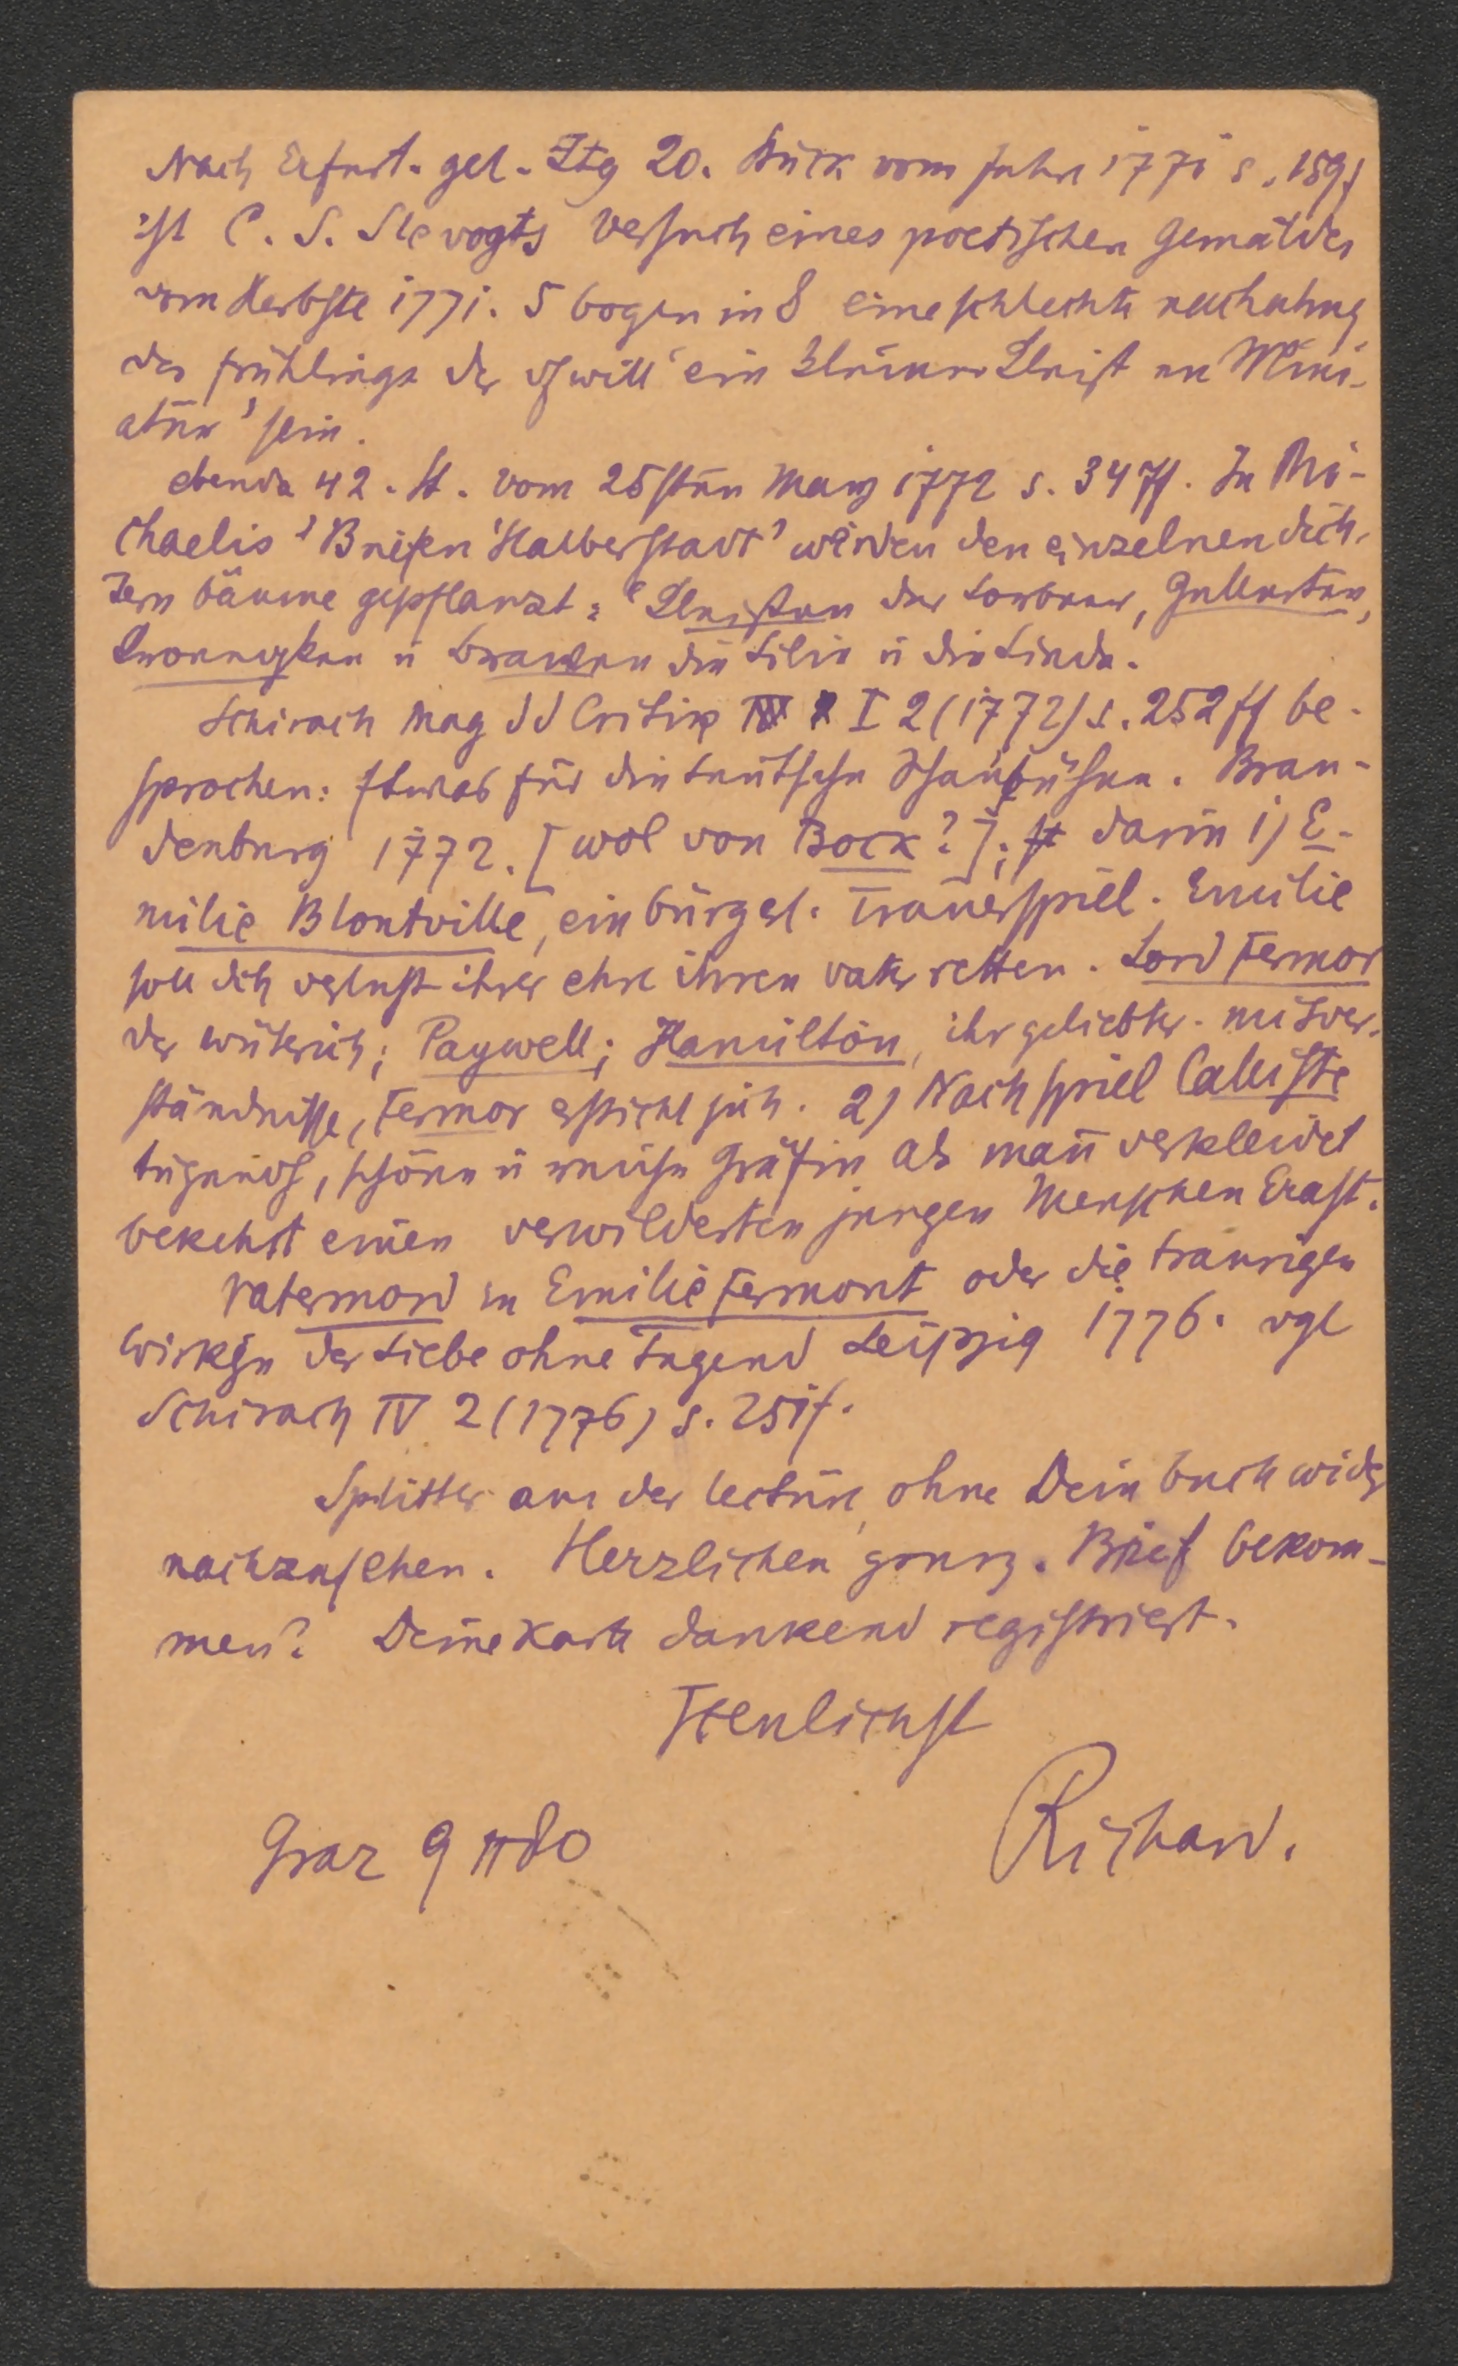 Nach Erfurt. gel. Ztg 20. Stück vom Jahre 1771 s. 159f
ist C. S. Slevogts Versuch eines poetischen Gemäldes
vom Herbste 1771. 5 bogen in 8 eine schlechte nachahmg
des frühlings der 'ein kleiner Kleist en Mini-
atür' sein.
ebenda 42. St. vom 25sten May 1772 s. 347f. In Mi-
chaelis 'Briefen Halberstadt' werden den einzelnen dich-
tern bäume gepflanzt: 'Kleisten der Lorbeer, Gellerten,
Kronegken u brawen die Lilie u die Linde.
Schirach Mag dd Critik I 2 (1772) s. 252ff be-
sprochen: Etwas für die teutsche Schaubühne. Bran-
denburg 1772. [wol von Bock?]; darin 1) E-
milie Blontville, ein bürgerl. Trauerspiel. Emilie
soll dch verlust ihrer ehre ihren vater retten. Lord Fermor
der wüterich; Paywell; Hamilton, ihr geliebter. misver-
ständnisse, Fermor ersticht sich. 2) Nachspiel Calliste
tugendh, schöne u reiche Gräfin als mañ verkleidet
bekehrt einen verwilderten jungen Menschen Erast.
Vatermord in Emilie Fermont oder die traurigen
Wirkgn der Liebe ohne Tugend Leipzig 1776. vgl
Schirach IV 2 (1776) s. 251f.
Splitter aus der lectüre, ohne Dein buch wider
nachzusehen. Herzlichen grusz. Brief bekom-
men? Deine Karte dankend registriert.
Treulichst
Richard.
Graz 9 II 80